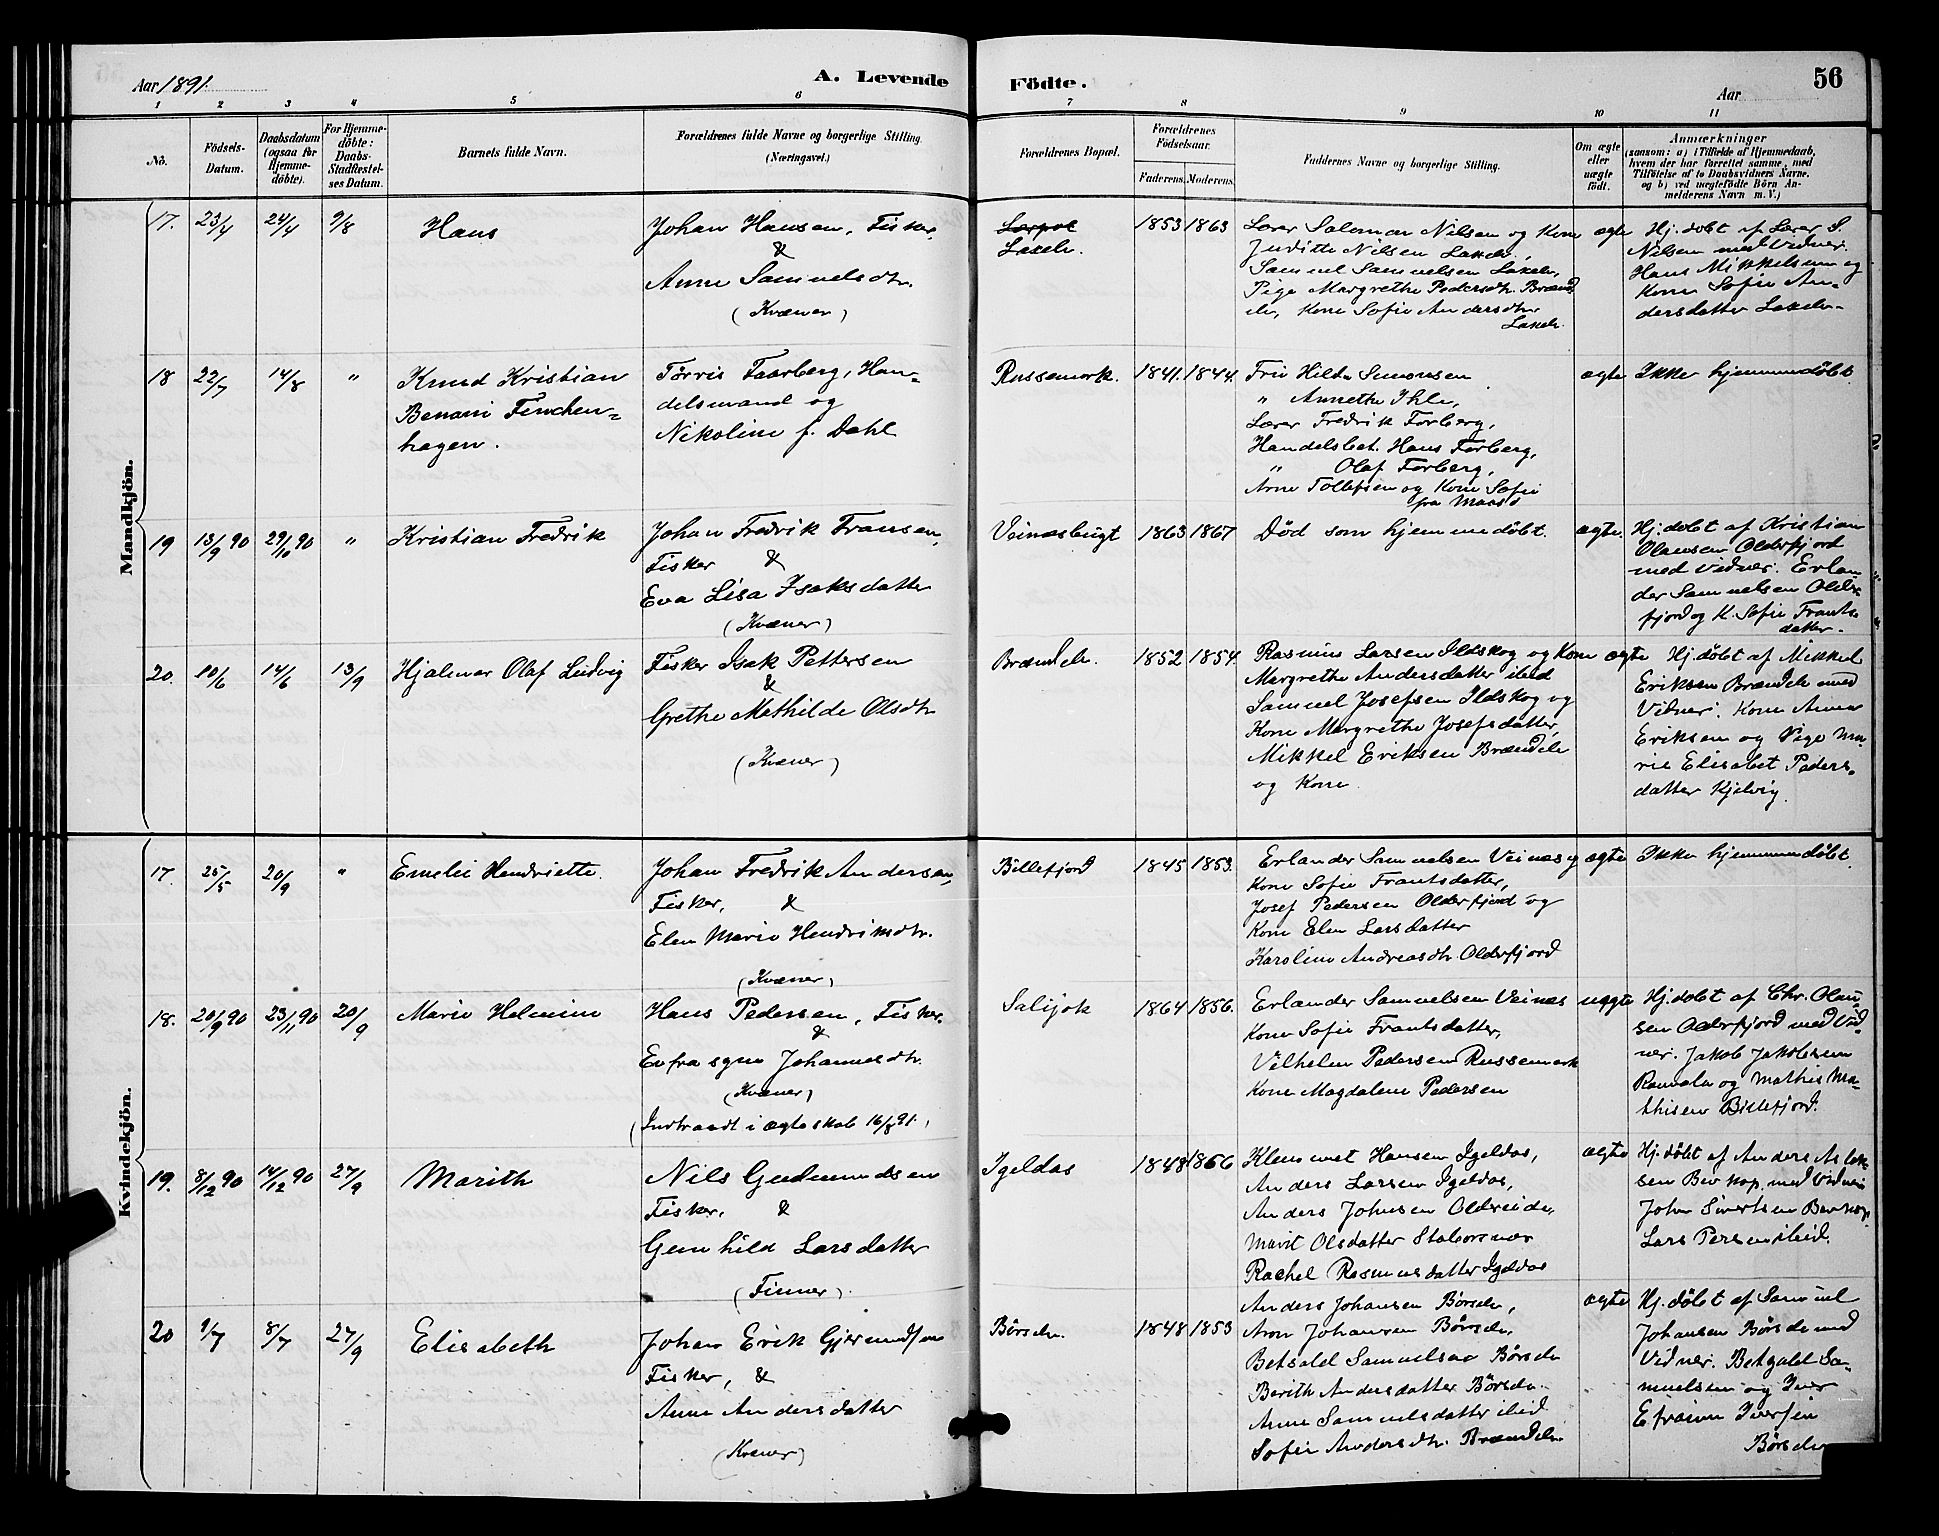 Aar 1891.
A. Levende
Födte.
Aar
56
1
2
3
4
5
6
7
8
9
10
11
No.
Födsels-
Datum.
Daabsdatum
(ogsaa for
Hjemme-
döbte).
For Hjemme-
döbte:
Daabs-
Stadfæstel-
ses Datum.
Barnets fulde Navn.
Forældrenes fulde Navne og borgerlige Stilling.
(Næringsvei.)
Forældrenes Bopæl.
Forældrenes
Födselsaar.
Faderens.
Moderens.
Faddernes Navne og borgerlige Stilling.
Om ægte
eller
uægte
födt.
Anmærkninger
(saasom: a) i Tilfælde af Hjemmedaab,
hvem der har forrettet samme, med
Tilföielse af to Daabsvidners Navne,
og b) ved uægtefödte Börn An-
melderens Navn m. V.)
Mandkjön.
17. 23/4 24/4 9/8 Hans
Johan Hansen, Fisker,
&
Anne Samuelsdtr.
(Kvæner)
Lakselv.
1853 1863
Lærer Salomon Nilsen og Kone
Juditte Nilsen Lakselv,
Samuel Samuelsen Lakselv,
Pige Margrethe Pedersdtr. Brænd
elv, Kone Sofie Andersdtr
Lakselv.
ægte
Hj. döbt af Lærer S.
Nilsen med Vidner.
Hans Mikkelsen og
Kone Sofie An-
dersdatter Lakselv.
18 22/7 14/8 " Knud Kristian
Benoni Finchen-
hagen.
Tørris Faarberg, Han-
delsmand og
Nikoline f. Dahl
Russemark.
1841. 1844.
Fru Hilda Simonsen
" Annethe Ihle,
Lærer Fredrik Forberg,
Handelsbet. Hans Forberg,
" Olaf Forberg,
Arne Tollefsen og Kone Sofie
fra Maasø
ægte
Ikke hjemmedöbt.
19 13/9 90 29/10 90 " Kristian Fredrik
Johan Fredrik Fransen,
Fisker &
Eva Lisa Isaksdatter
(Kvæner)
Veinæsbugt
1863 1867
Död som hjemmedöbt.
ægte.
Hj. döbt af Kristian
Olausen Olderfjord
med Vidner. Erlan-
der Samuelsen Older-
fjord og K. Sofie Frants-
datter.
20. 10/6 14/6 13/9 Hjalmar Olaf Ludvig
Fisker Isak Pettersen
&
Grethe Mathilde Olsdtr
(Kvæner)
Brændelv.
1852 1854.
Rasmus Larsen Ildskog og Kone
Margrethe Andersdatter ibid
Samuel Josefsen Ildskog og
Kone Margrethe Josefsdatter,
Mikkel Eriksen Brændelv
og Kone.
ægte
Hj. döbt af Mikkel
Eriksen Brændelv med
Vidner. Kone Anna
Eriksen og Pige Ma-
rie Elisabet Peders-
datter Kjelvig.
Kvindekjön.
17. 25/5 20/9 " Emelie Hendriette.
Johan Fredrik Andersen,
Fisker, &
Elen Marie Hendriksdtr.
(Kvæner)
Billefjord
1845 1853.
Erlander Samuelsen Veinæs og
Kone Sofie Frantsdatter,
Josef Pedersen Olderfjord og
Kone Elen Larsdatter
Karoline Andreasdtr. Olderfjord
ægte
Ikke hjemmedöbt.
18. 20/9 90 23/11 90 20/9 Marie Helmine
Hans Pedersen, Fisker.
&
Eufrasyne Johannesdtr.
(Kvæner)
(Indtraadt i ægteskab 16/8 91.)
Salijok
1864 1856.
Erlander Samuelsen Veinæs
Kone Sofie Frantsdatter,
Vilhelm Pedersen Russemark
Kone Magdalene Pedersen
uægte
Hj. döbt af Chr. Olau-
sen Olderfjord med Vid-
ner. Jakob Jakobsen
Rauvala og Mathis Ma-
thisen Billefjord.
19. 8/12 90 14/12 90 27/9 Marith
Nils Gudmundsen
Fisker. &
Gunhild Larsdatter
(Finner).
Igeldas
1848 1866
Klemmet Hansen Igeldas,
Anders Larsen Igeldas,
Anders Johnsen Oldereide,
Marit Olsdatter
Rachel Rasmusdatter Igeldas
ægte
Hj. döbt af Anders Aslak-
sen Bevkop. med Vidner
John Sivertsen Bevkop,
Lars Persen ibid.
20 1/7 8/7 27/9 Elisabeth
Johan Erik Gjermundsen
Fisker, &
Anne Andersdatter
(Kvæner)
Börselv.
1848 1853
Anders Johansen Börselv,
Aron Johansen Börselv,
Betsald Samuelsen Börselv
Berith Andersdatter Börselv.
Anne Samuelsdatter ibid.
Sofie Andersdtr. Brændelv.
ægte
Hj. döbt af Samuel
Johansen Börselv med
Vidner. Betsald Sa-
muelsen og Iver
Efraim Iversen
Börselv